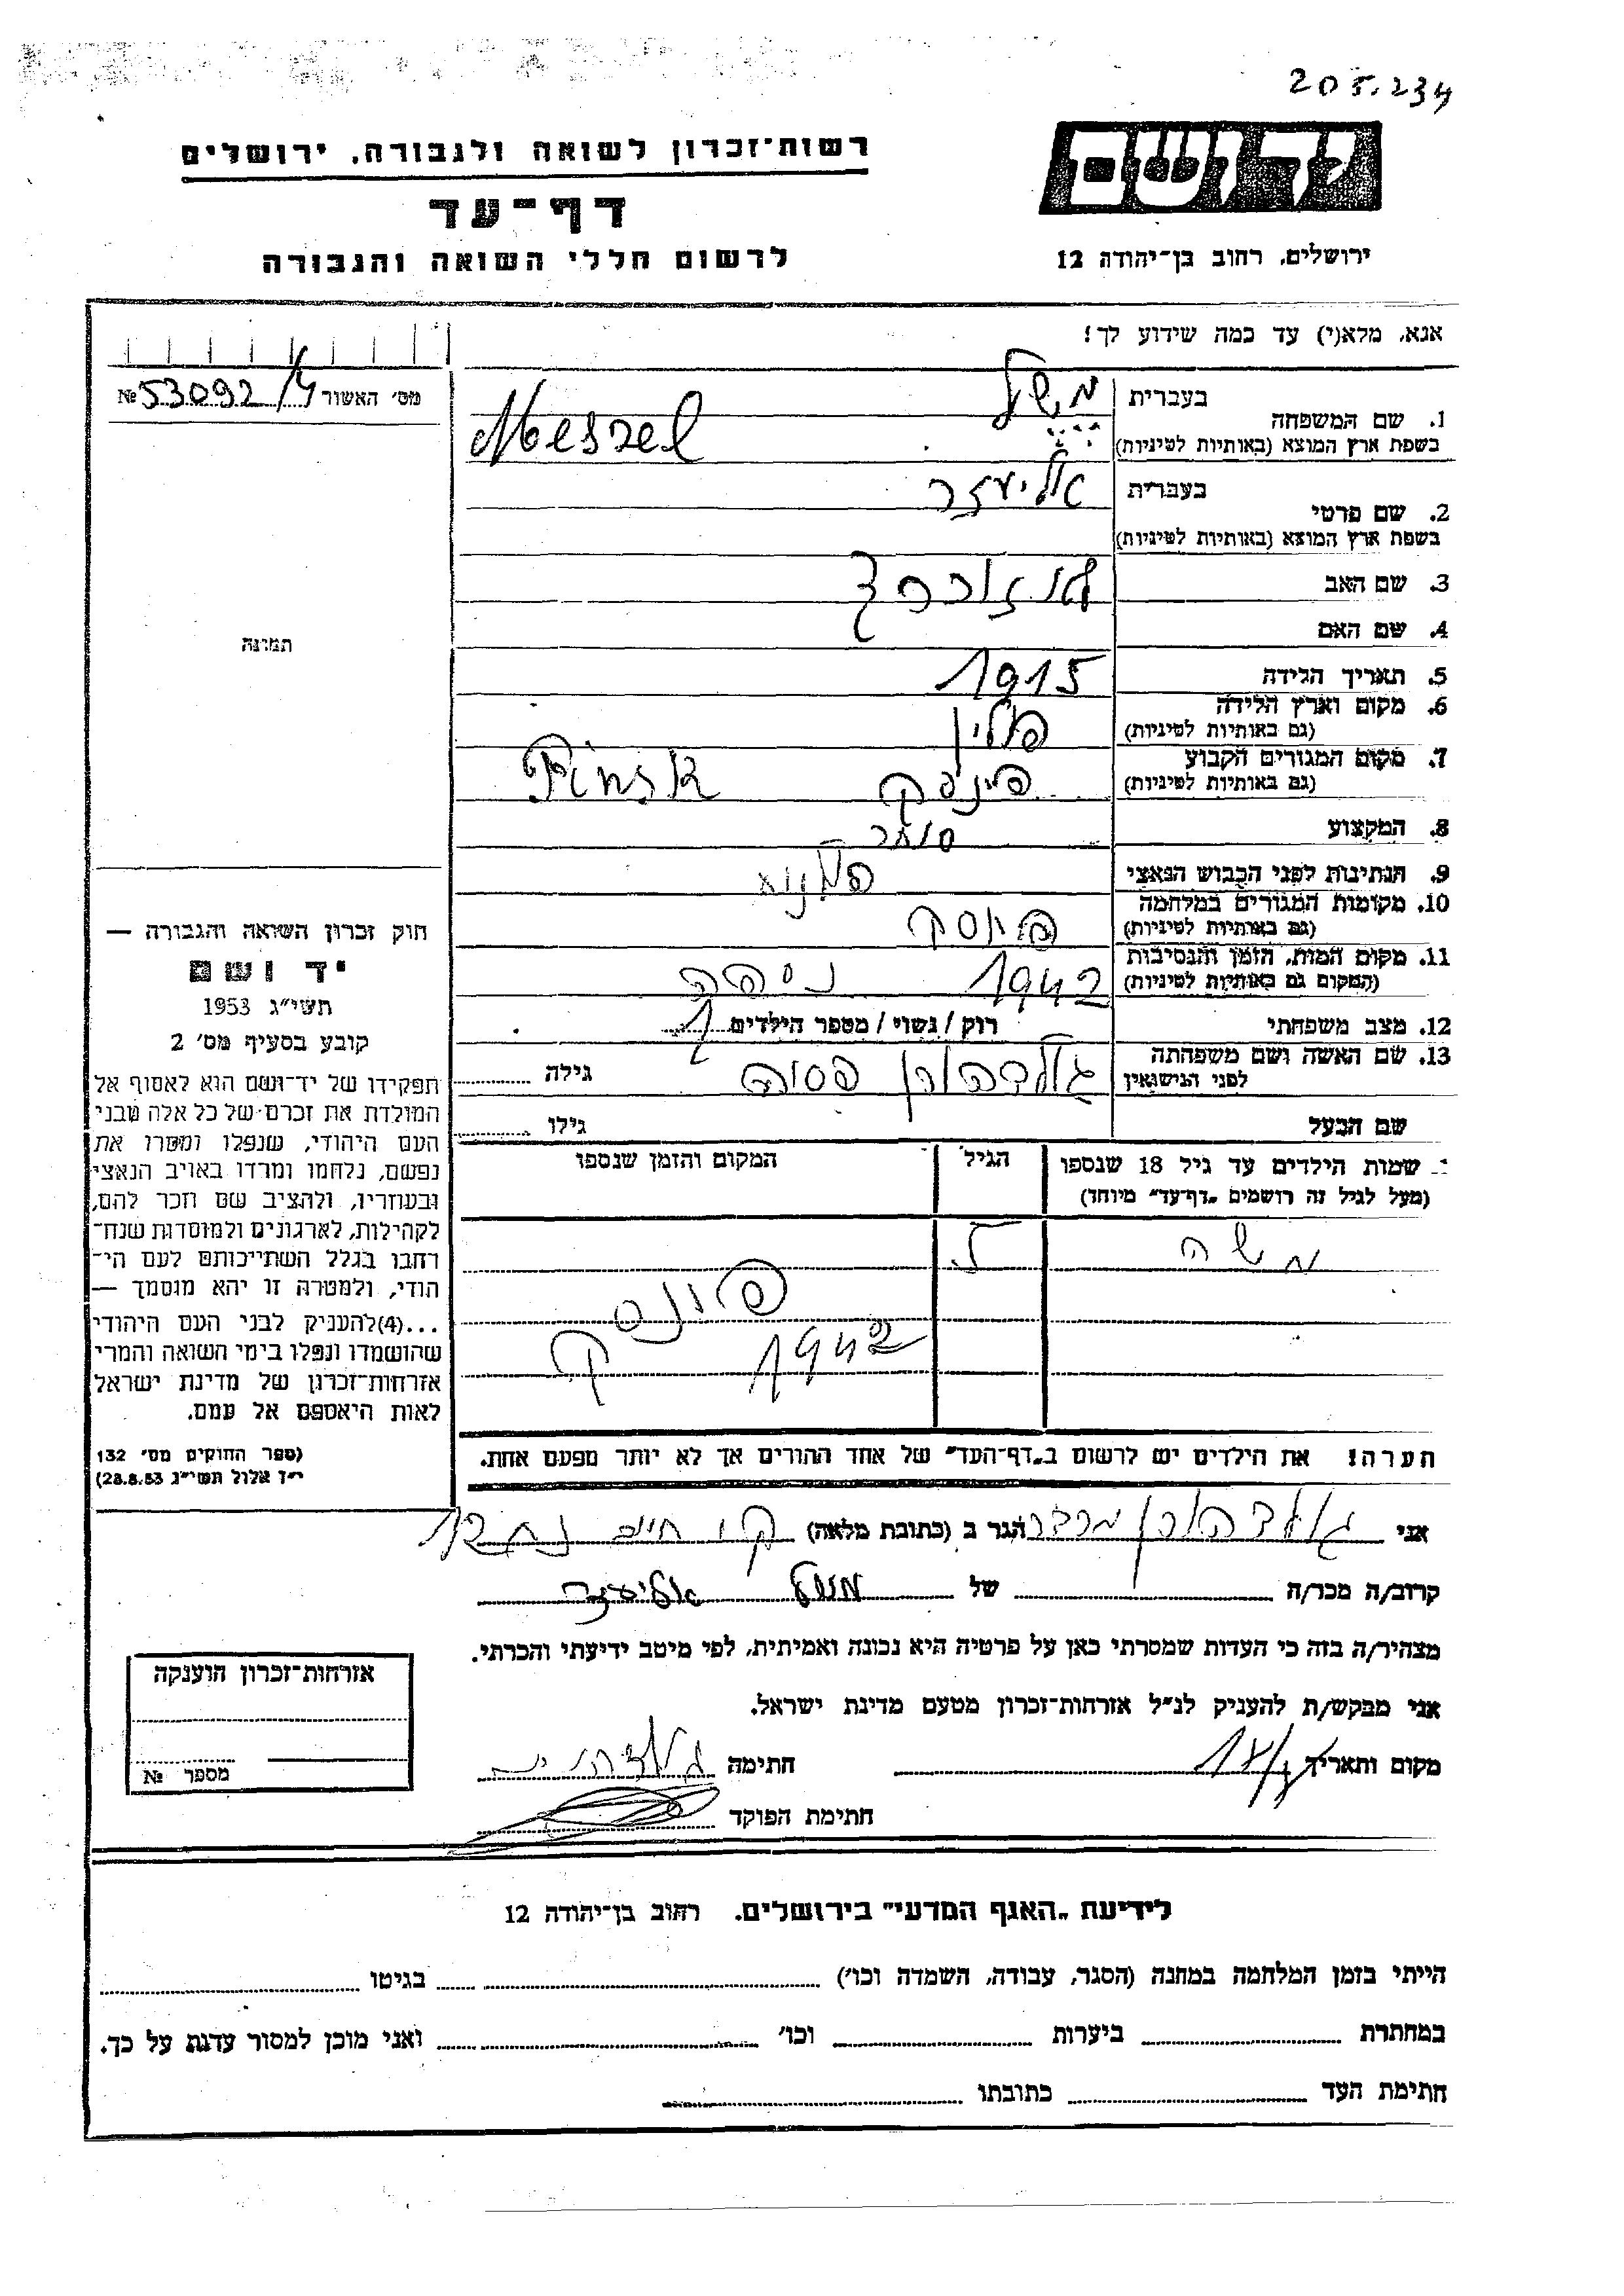 205.234
יד ושם
רשות־זכרון לשואה ולגבורה, ירושלים
דף־עד
לרשום חללי השואה והגבורה
ירושלים, רחוב בן־יהודה 12
אנא, מלא(י) עד כמה שידוע לך!
מס׳ האשור № 53092/4
1. שם המשפחה
בעברית משל
בשפת ארץ המוצא (באותיות לטיניות) Meszel
2. שם פרטי
בעברית אליעזר
בשפת ארץ המוצא (באותיות לטיניות)
3. שם האב
4. שם האם
5. תאריך הלידה 1915
6. מקום וארץ הלידה פולין
(גם באותיות לטיניות)
7. מקום המגורים הקבוע פינסק Pinsk
(גם באותיות לטיניות)
8. המקצוע סוחר
9. הנתינות לפני הכבוש הנאצי
10. מקומות המגורים במלחמה פינסק
(גם באותיות לטיניות)
11. מקום המות, הזמן והנסיבות 1942 ניספה
(המקום גם באותיות לטיניות)
12. מצב משפחתי רוק / נשוי / מספר הילדים 1
13. שם האשה ושם משפחתה
לפני הנישואין גולדהורן פסיה גילה
שם הבעל גילו
שמות הילדים עד גיל 18 שנספו הגיל המקום והזמן שנספו
(מעל לגיל זה רושמים „דף־עד״ מיוחד)
משה
פינסק
1942
הערה! את הילדים יש לרשום ב„דף־העד״ של אחד ההורים אך לא יותר מפעם אחת.
תמונה
חוק זכרון השואה והגבורה —
יד ושם
תשי״ג 1953
קובע בסעיף מס׳ 2
תפקידו של יד־ושם הוא לאסוף אל
המולדת את זכרם של כל אלה מבני
העם היהודי, שנפלו ומסרו את
נפשם, נלחמו ומרדו באויב הנאצי
ובעוזריו, ולהציב שם וזכר להם,
לקהילות, לארגונים ולמוסדות שנח־
רחבו בגלל השתייכותם לעם הי־
הודי, ולמטרה זו יהא מוסמך —
...(4)להעניק לבני העם היהודי
שהושמדו ונפלו בימי השואה והמרי
אזרחות־זכרון של מדינת ישראל
לאות היאספם אל עמם.
(ספר החוקים מס׳ 132
י״ז אלול תשי״ג 28.8.53)
אני גולדהורן מרדכי הגר ב (כתובת מלאה)
קרוב/ה מכר/ה של משל אליעזר
מצהיר/ה בזה כי העדות שמסרתי כאן על פרטיה היא נכונה ואמיתית, לפי מיטב ידיעתי והכרתי.
אני מבקש/ת להעניק לנ״ל אזרחות־זכרון מטעם מדינת ישראל.
מקום ותאריך חתימה
חתימת הפוקד
אזרחות־זכרון הוענקה
מספר №
לידיעת „האגף המדעי״ בירושלים. רחוב בן־יהודה 12
הייתי בזמן המלחמה במחנה (הסגר, עבודה, השמדה וכו׳) בגיטו
במחתרת ביערות וכו׳ ואני מוכן למסור עדות על כך.
חתימת העד כתובתו